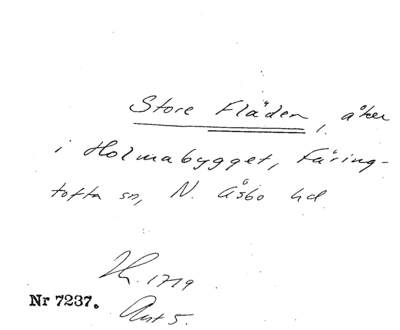 Store Fläden, åker
i Holmabygget, Färing-
tofta sn, N. Åsbo hd
1719
Nr 7237.
Ant 5.